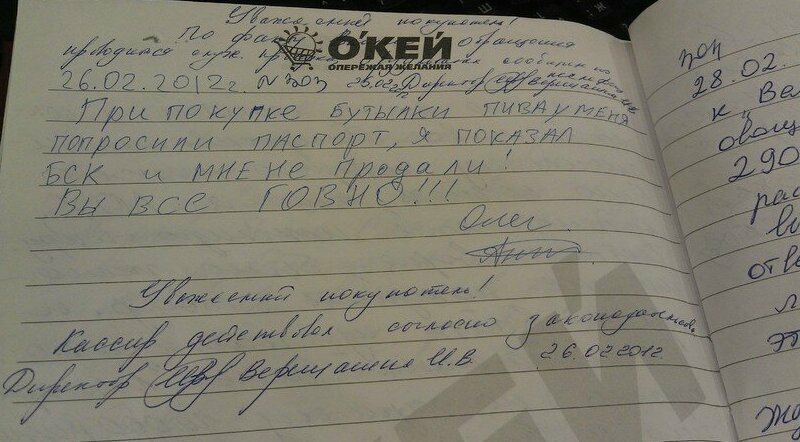 Уважаемый покупатель!
По факту Вашего обращения
проводится служ.
О'КЕЙ
ОПЕРЕЖАЯ ЖЕЛАНИЯ
26.02.2012г. N 303
Директор Верещагина И.В.
При покупке бутылки пива у меня
попросили паспорт, я показал
БСК и мне не продали!
Вы все говно!!!
Олег
Уважаемый покупатель!
Кассир действовал согласно законодательства
Директор Верещагина И.В. 26.02.2012
303
28.02.
к Ве
овощ
290
рас
отве
эт